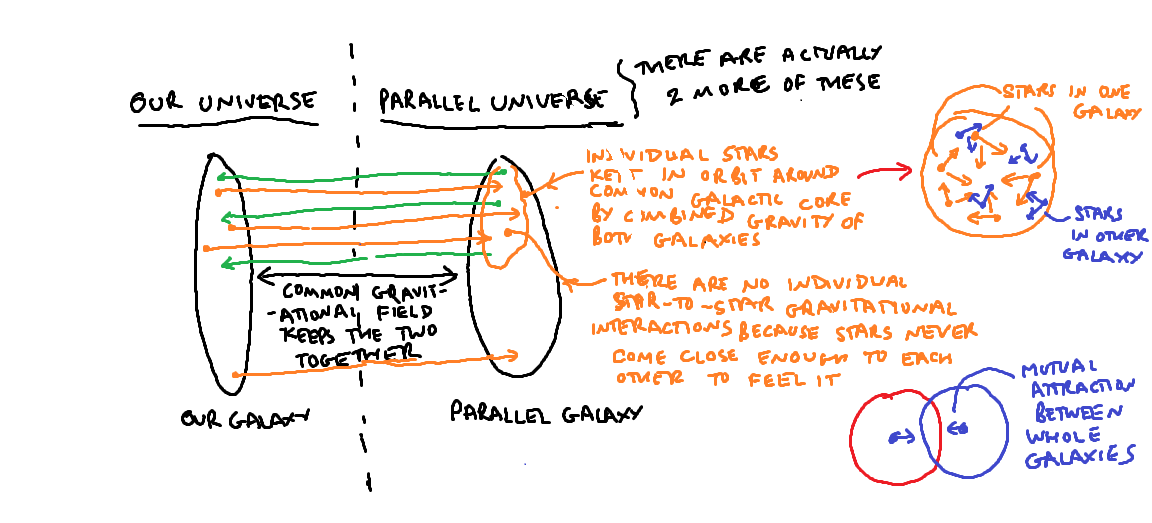 THERE ARE ACTUALLY
2 MORE OF THESE
OUR UNIVERSE
PARALLEL UNIVERSE
INDIVIDUAL STARS
KEPT IN ORBIT AROUND
COMMON GALACTIC CORE
BY COMBINED GRAVITY OF
BOTH GALAXIES
STARS IN ONE
GALAXY
STARS
IN OTHER
GALAXY
COMMON GRAVIT-
-ATIONAL FIELD
KEEPS THE TWO
TOGETHER
THERE ARE NO INDIVIDUAL
STAR-TO-STAR GRAVITATIONAL
INTERACTIONS BECAUSE STARS NEVER
COME CLOSE ENOUGH TO EACH
OTHER TO FEEL IT
OUR GALAXY
PARALLEL GALAXY
MUTUAL
ATTRACTION
BETWEEN
WHOLE
GALAXIES